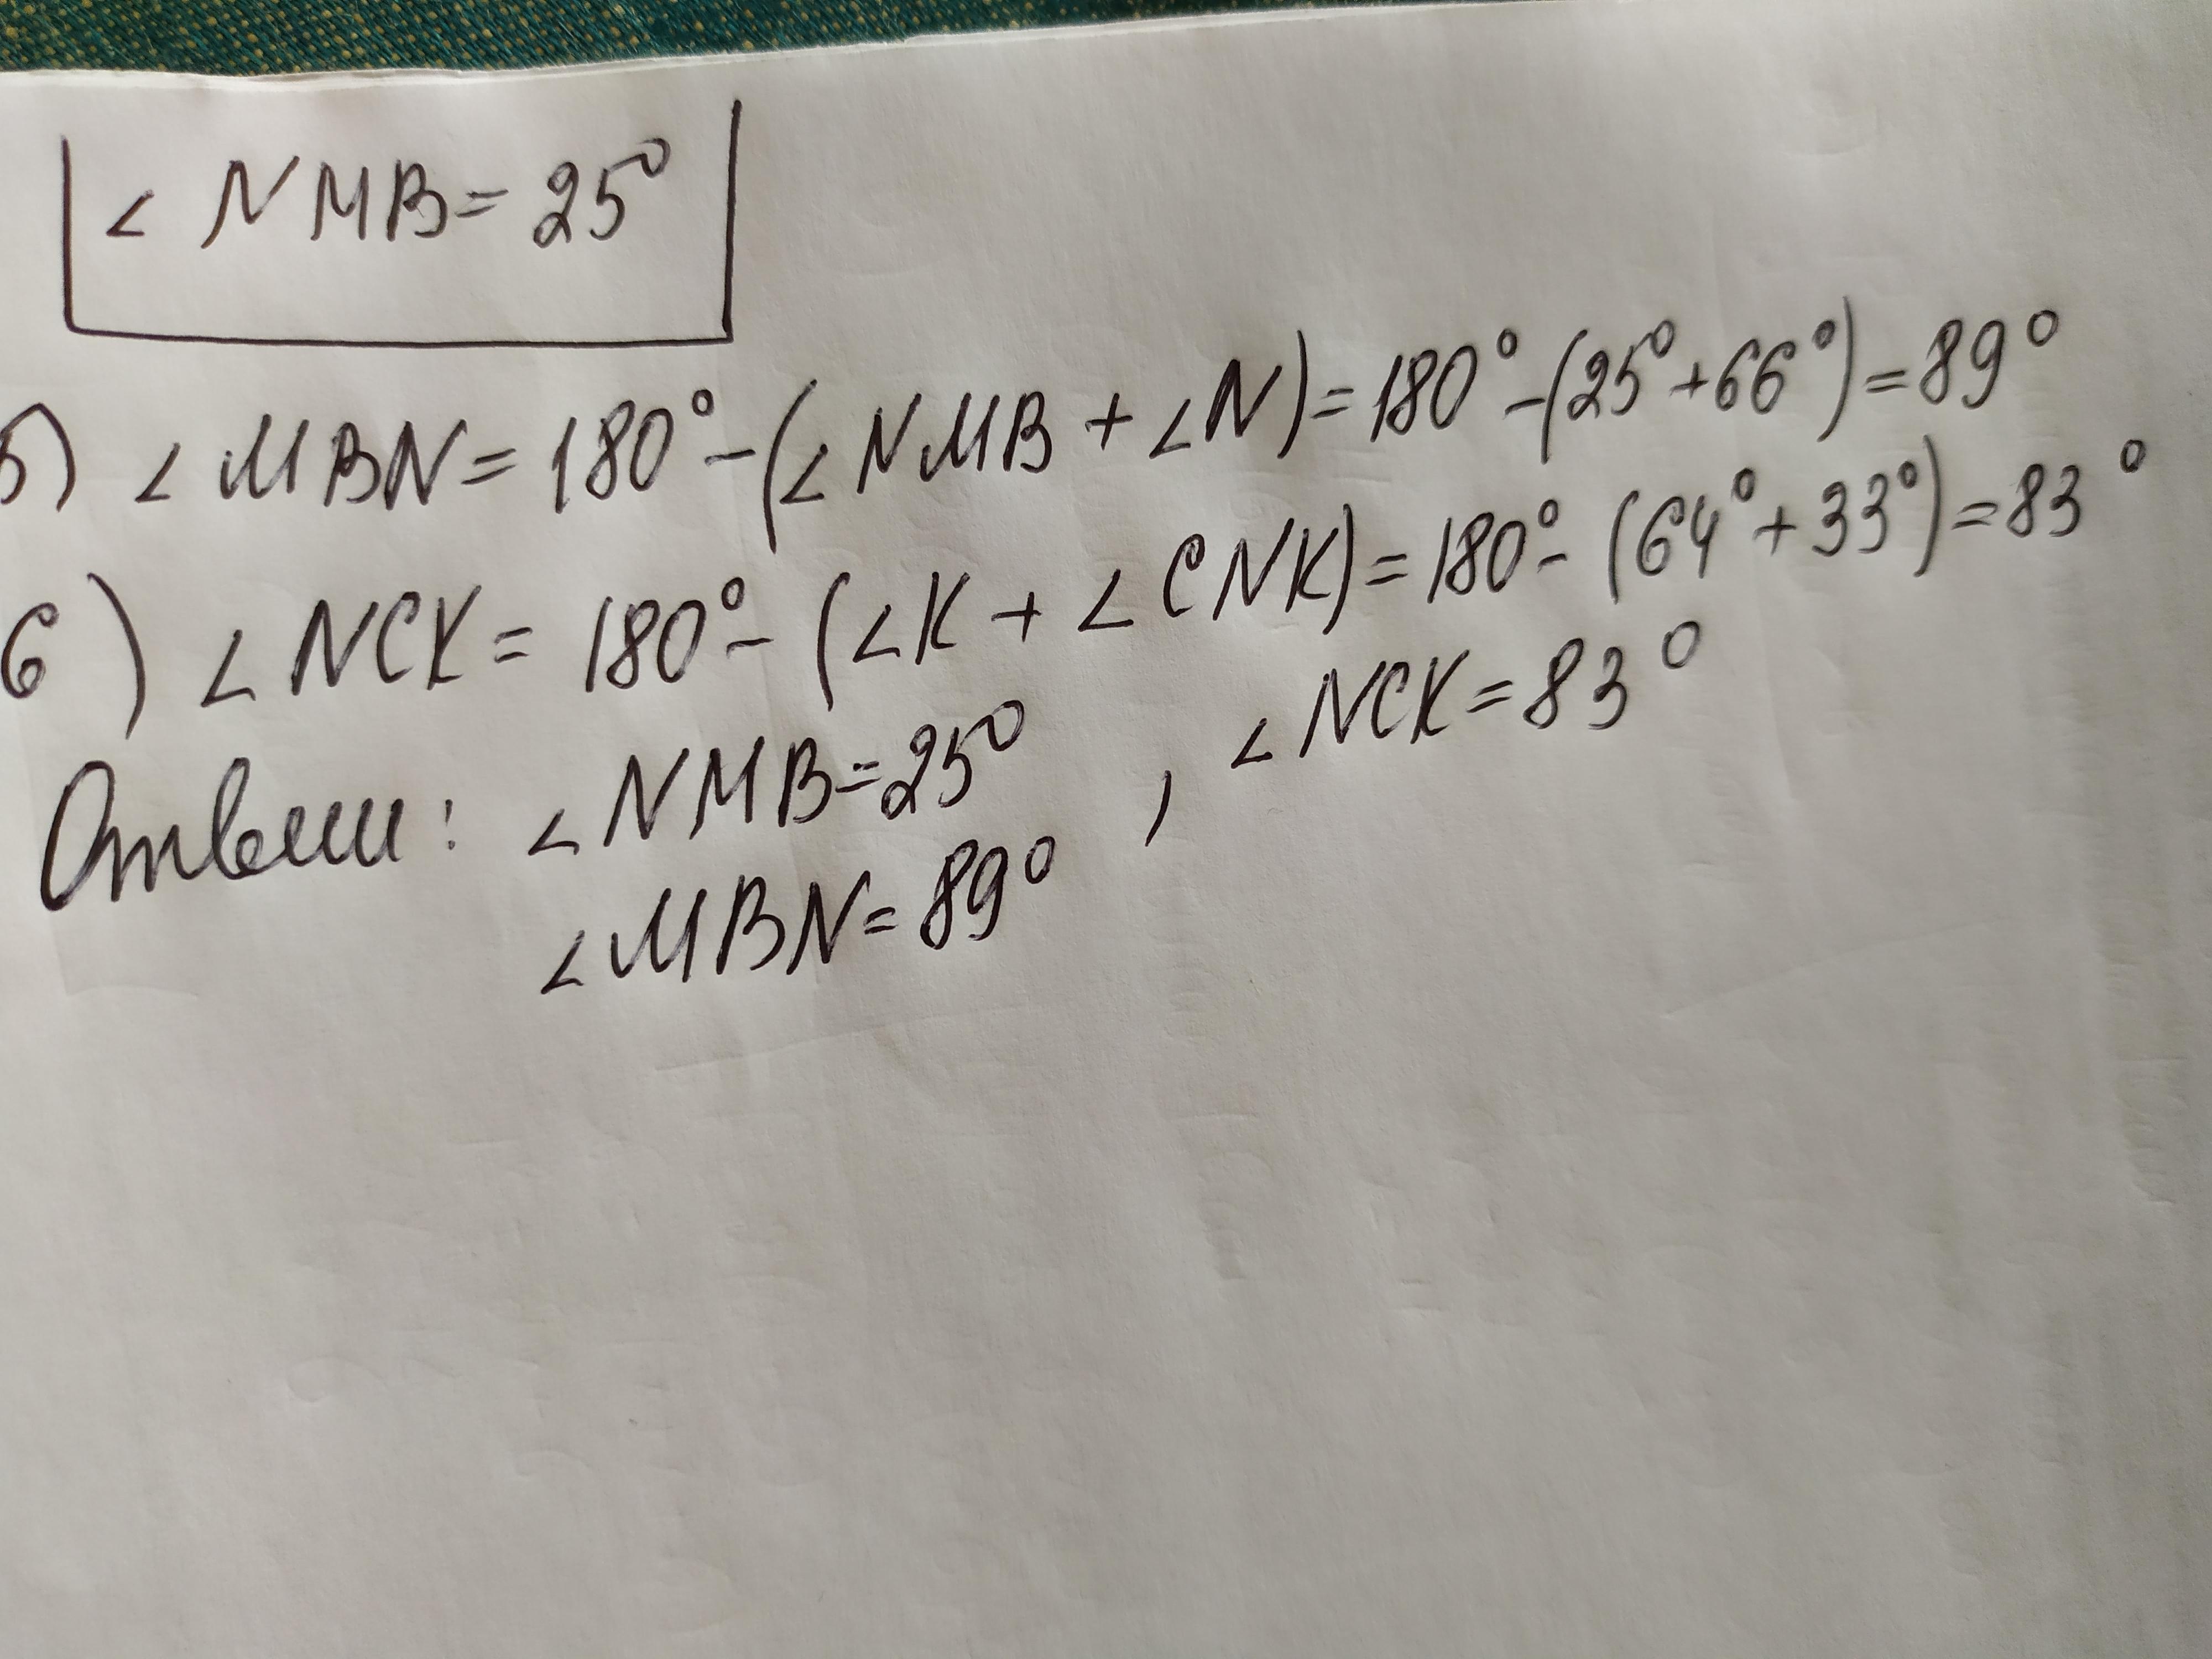 ∠ NMB = 25°
5) ∠ MBN = 180° - (∠ NMB + ∠N) = 180° - (25° + 66°) = 89°
6) ∠ NCK = 180° - (∠K + ∠CNK) = 180° - (64° + 33°) = 83°
Ответ: ∠ NMB = 25°, ∠ NCK = 83°
∠ MBN = 89°